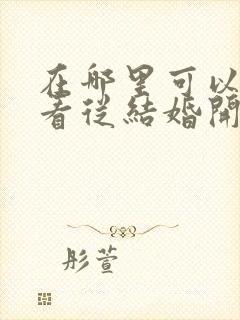 在哪里可以
看從結婚開
彤萱